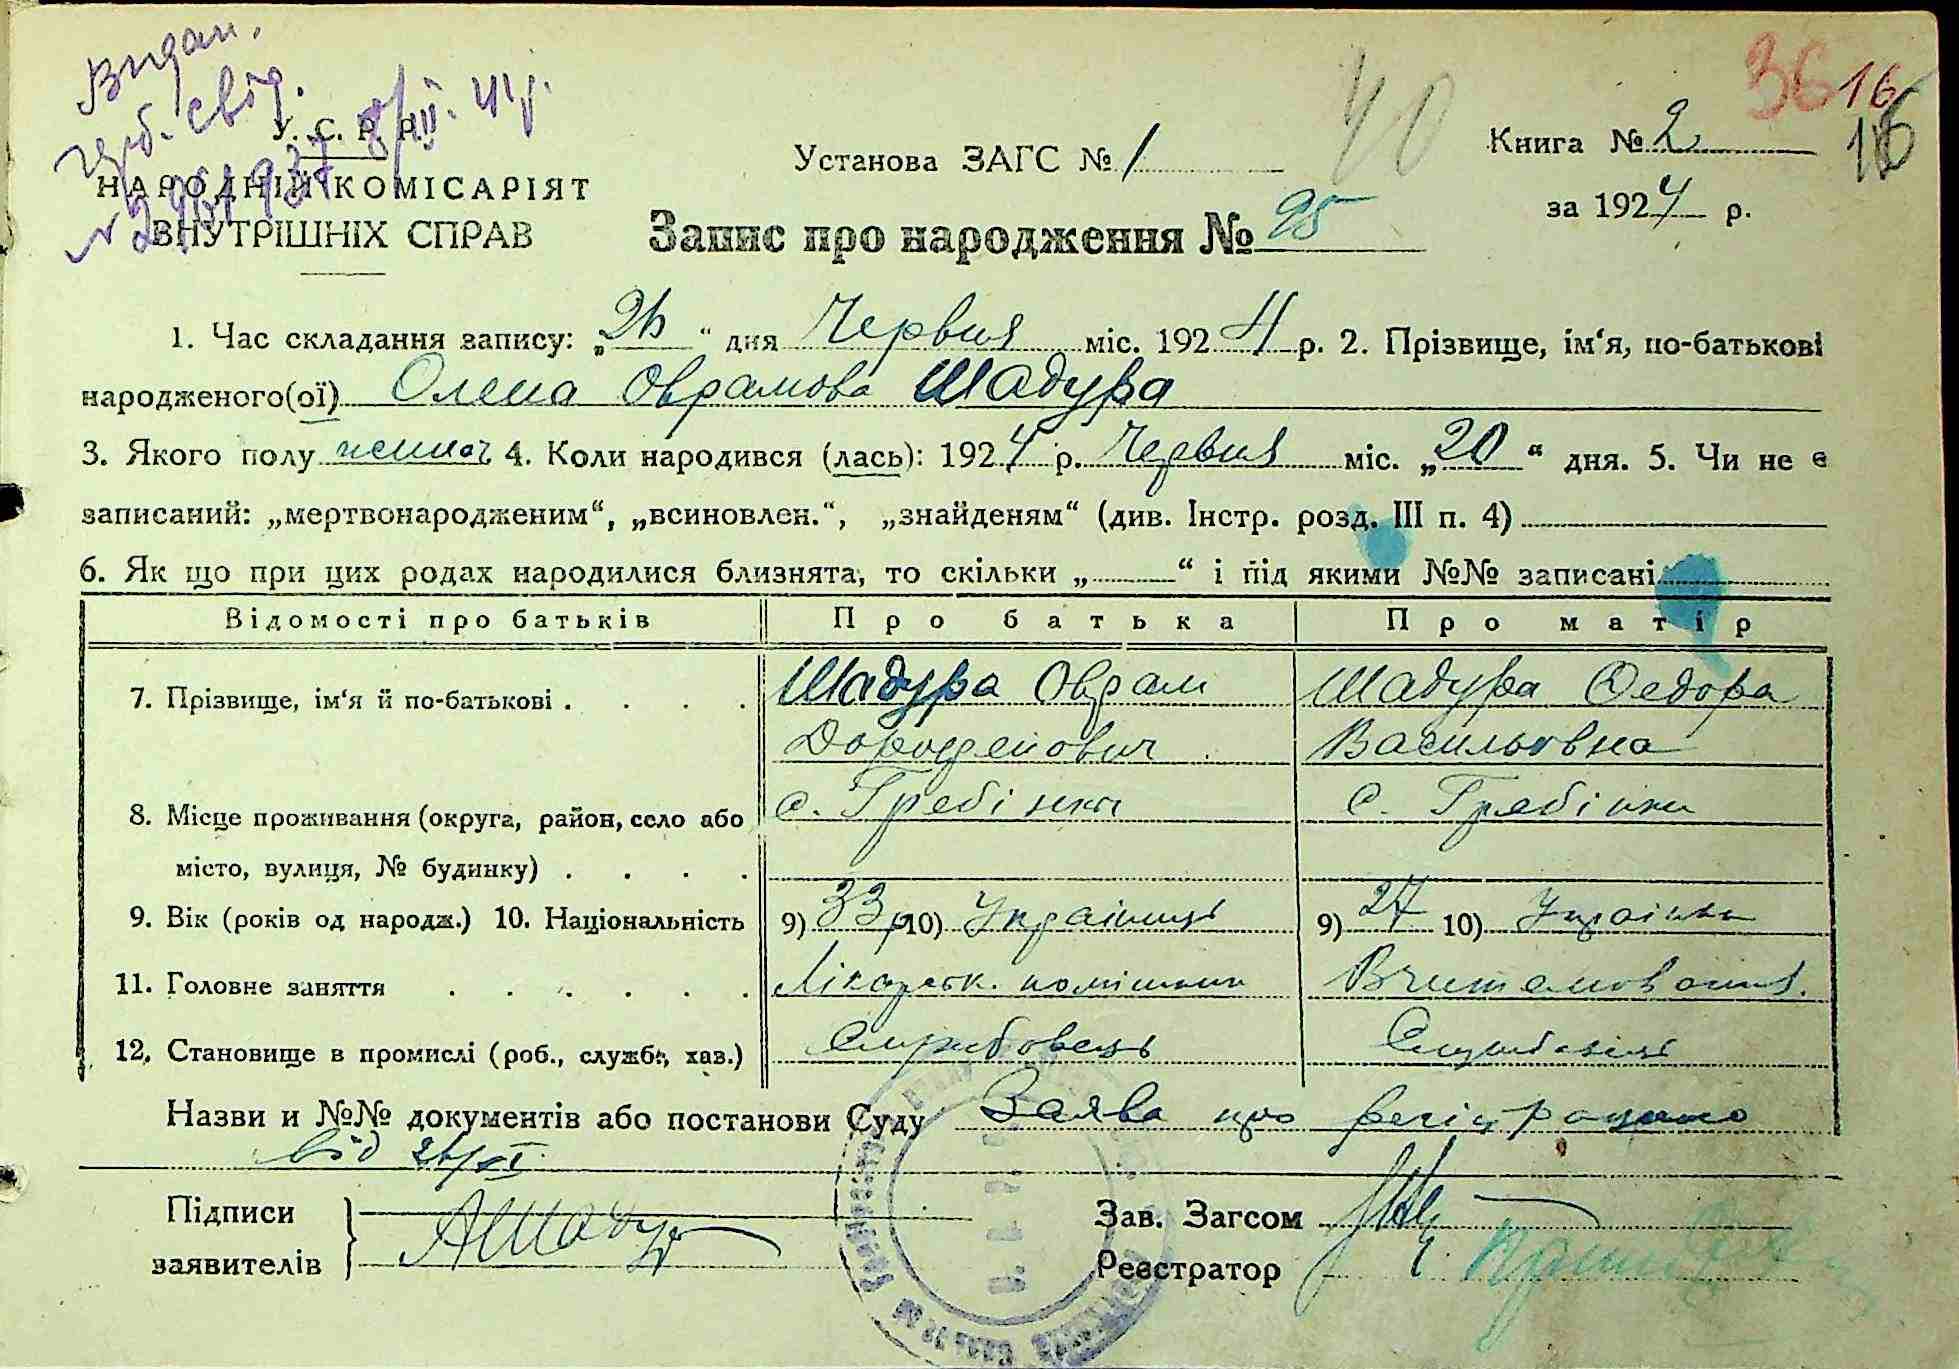 Видан.
У. С. Р. Р.
НАРОДНІЙ КОМІСАРІЯТ
ВНУТРІШНІХ СПРАВ
Установа ЗАГС № 1
40
36 16
16
Книга № 2
за 1924 р.
Запис про народження № 95
1. Час складання запису: „26“ дня Червня міс. 1924 р. 2. Прізвище, ім‘я, по-батькові
народженого(ої) Олена Оврамова Шадура
3. Якого полу жіноч 4. Коли народився (лась): 1924 р. Червня міс. „20“ дня. 5. Чи не є
записаний: „мертвонародженим“, „всиновлен.“, „знайденям“ (див. Інстр. розд. III п. 4)
6. Як що при цих родах народилися близнята, то скільки „ “ і під якими №№ записані
Відомості про батьків Про батька Про матір
7. Прізвище, ім‘я й по-батькові . . . . Шадура Оврам Шадура Федора
Дорофейович Васильовна
8. Місце проживання (округа, район, село або с. Гребінки с. Гребінки
місто, вулиця, № будинку) . . . .
9. Вік (років од народж.) 10. Національність 9) 33 р 10) Українець 9) 27 10) Українка
11. Головне заняття . . . . . . Лікарськ. помішник Вчителювання.
12. Становище в промислі (роб., службі, хаз.) Службовець Службовець
Назви и №№ документів або постанови Суду Заява про регістрацію
від 26/VI
Підписи
заявителів АШадура
Зав. Загсом
Реєстратор